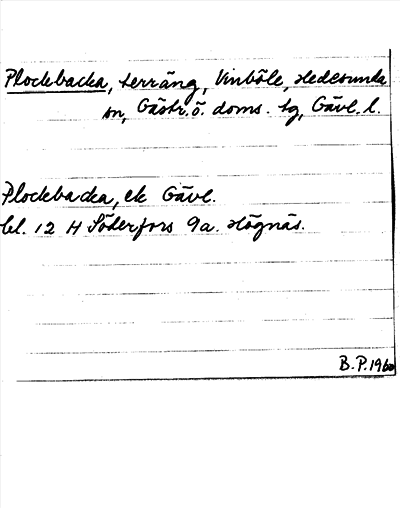 Plockbacka, terräng, Vinböle, Hedesunda
sn, Gästr. ö. doms. tg, Gävl. l.
Plockbacka, ek Gävl.
bl. 12 H Söderfors 9a. Högnäs.
B.P. 1960